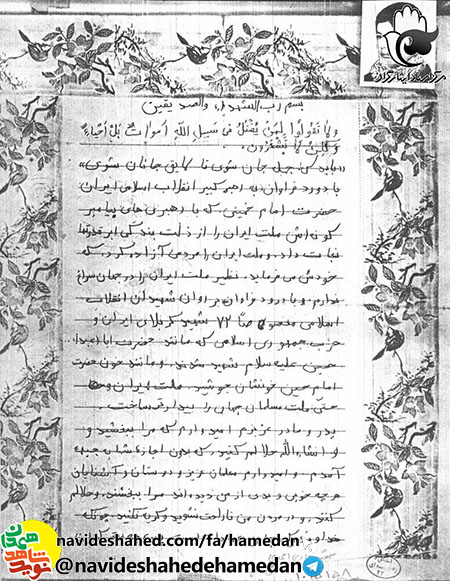 بسم رب الشهداء والصدیقین
ولا تقولوا لمن یقتل فی سبیل الله امواتٌ بل احیاءٌ
ولکن لا تشعرون.
«باید که جمله جان شوی تا لایق جانان شوی»
با درود فراوان به رهبر کبیر انقلاب اسلامی ایران
حضرت امام خمینی که با رهبری های پیامبر
گونه اش ملت ایران را از ذلت بندگی ابرقدرتها
نجات داد. و ملت ایران را مردمی آزاده کرد. که
خودش می فرماید. نظیر ملت ایران را در جهان سراغ
ندارم. و با درود فراوان بر روان شهیدان انقلاب
اسلامی مخصوصاً ۷۲ شهید کربلای ایران و
حزب جمهوری اسلامی که مانند حضرت ابا عبدا...
حسین علیه سلام شهید شدند. و مانند خون حضرت
امام حسین خونشان جوشید. ملت ایران و
حتی ملت مسلمان جهان را بیدار ساخت.
پدر و مادر عزیزم امیدوارم که مرا ببخشید و
انشاءالله حلالم کنید. که بدون اجازه شان جبهه
آمدم. و امیدوارم معلمان عزیز و دوستان و آشنایان
هرچه خوبی و بدی از من دیده اند مرا ببخشند. و حلالم
کنند. و در مردن من ناراحت نشوید و گریه نکنید. چونکه
navideshahed.com/fa/hamedan
@navideshahedehamedan
نوید شاهد همدان